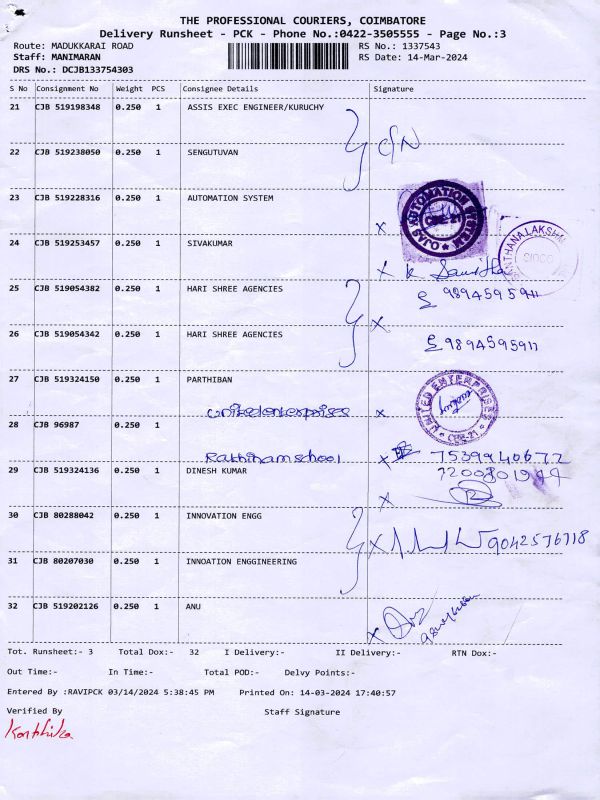 THE PROFESSIONAL COURIERS, COIMBATORE
Delivery Runsheet - PCK - Phone No.:0422-3505555 - Page No.:3
Route: MADUKKARAI ROAD RS No.: 1337543
Staff: MANIMARAN RS Date: 14-Mar-2024
DRS No.: DCJB133754303
S No Consignment No Weight PCS Consignee Details Signature
21 CJB 519198348 0.250 1 ASSIS EXEC ENGINEER/KURUCHY
22 CJB 519238050 0.250 1 SENGUTUVAN
23 CJB 519228316 0.250 1 AUTOMATION SYSTEM
OJAS AUTOMATION SYSTEM
CBE-21
24 CJB 519253457 0.250 1 SIVAKUMAR
25 CJB 519054382 0.250 1 HARI SHREE AGENCIES
9894595911
26 CJB 519054342 0.250 1 HARI SHREE AGENCIES
9894595911
27 CJB 519324150 0.250 1 PARTHIBAN
United enterprises
UNITED ENTERPRISES
CBE-21
28 CJB 96987 0.250 1
Rathinam school 7539940672
29 CJB 519324136 0.250 1 DINESH KUMAR
30 CJB 80288042 0.250 1 INNOVATION ENGG
9042576718
31 CJB 80207030 0.250 1 INNOATION ENGGINEERING
32 CJB 519202126 0.250 1 ANU
Tot. Runsheet:- 3 Total Dox:- 32 I Delivery:- II Delivery:- RTN Dox:-
Out Time:- In Time:- Total POD:- Delvy Points:-
Entered By :RAVIPCK 03/14/2024 5:38:45 PM Printed On: 14-03-2024 17:40:57
Verified By Staff Signature
Karthika